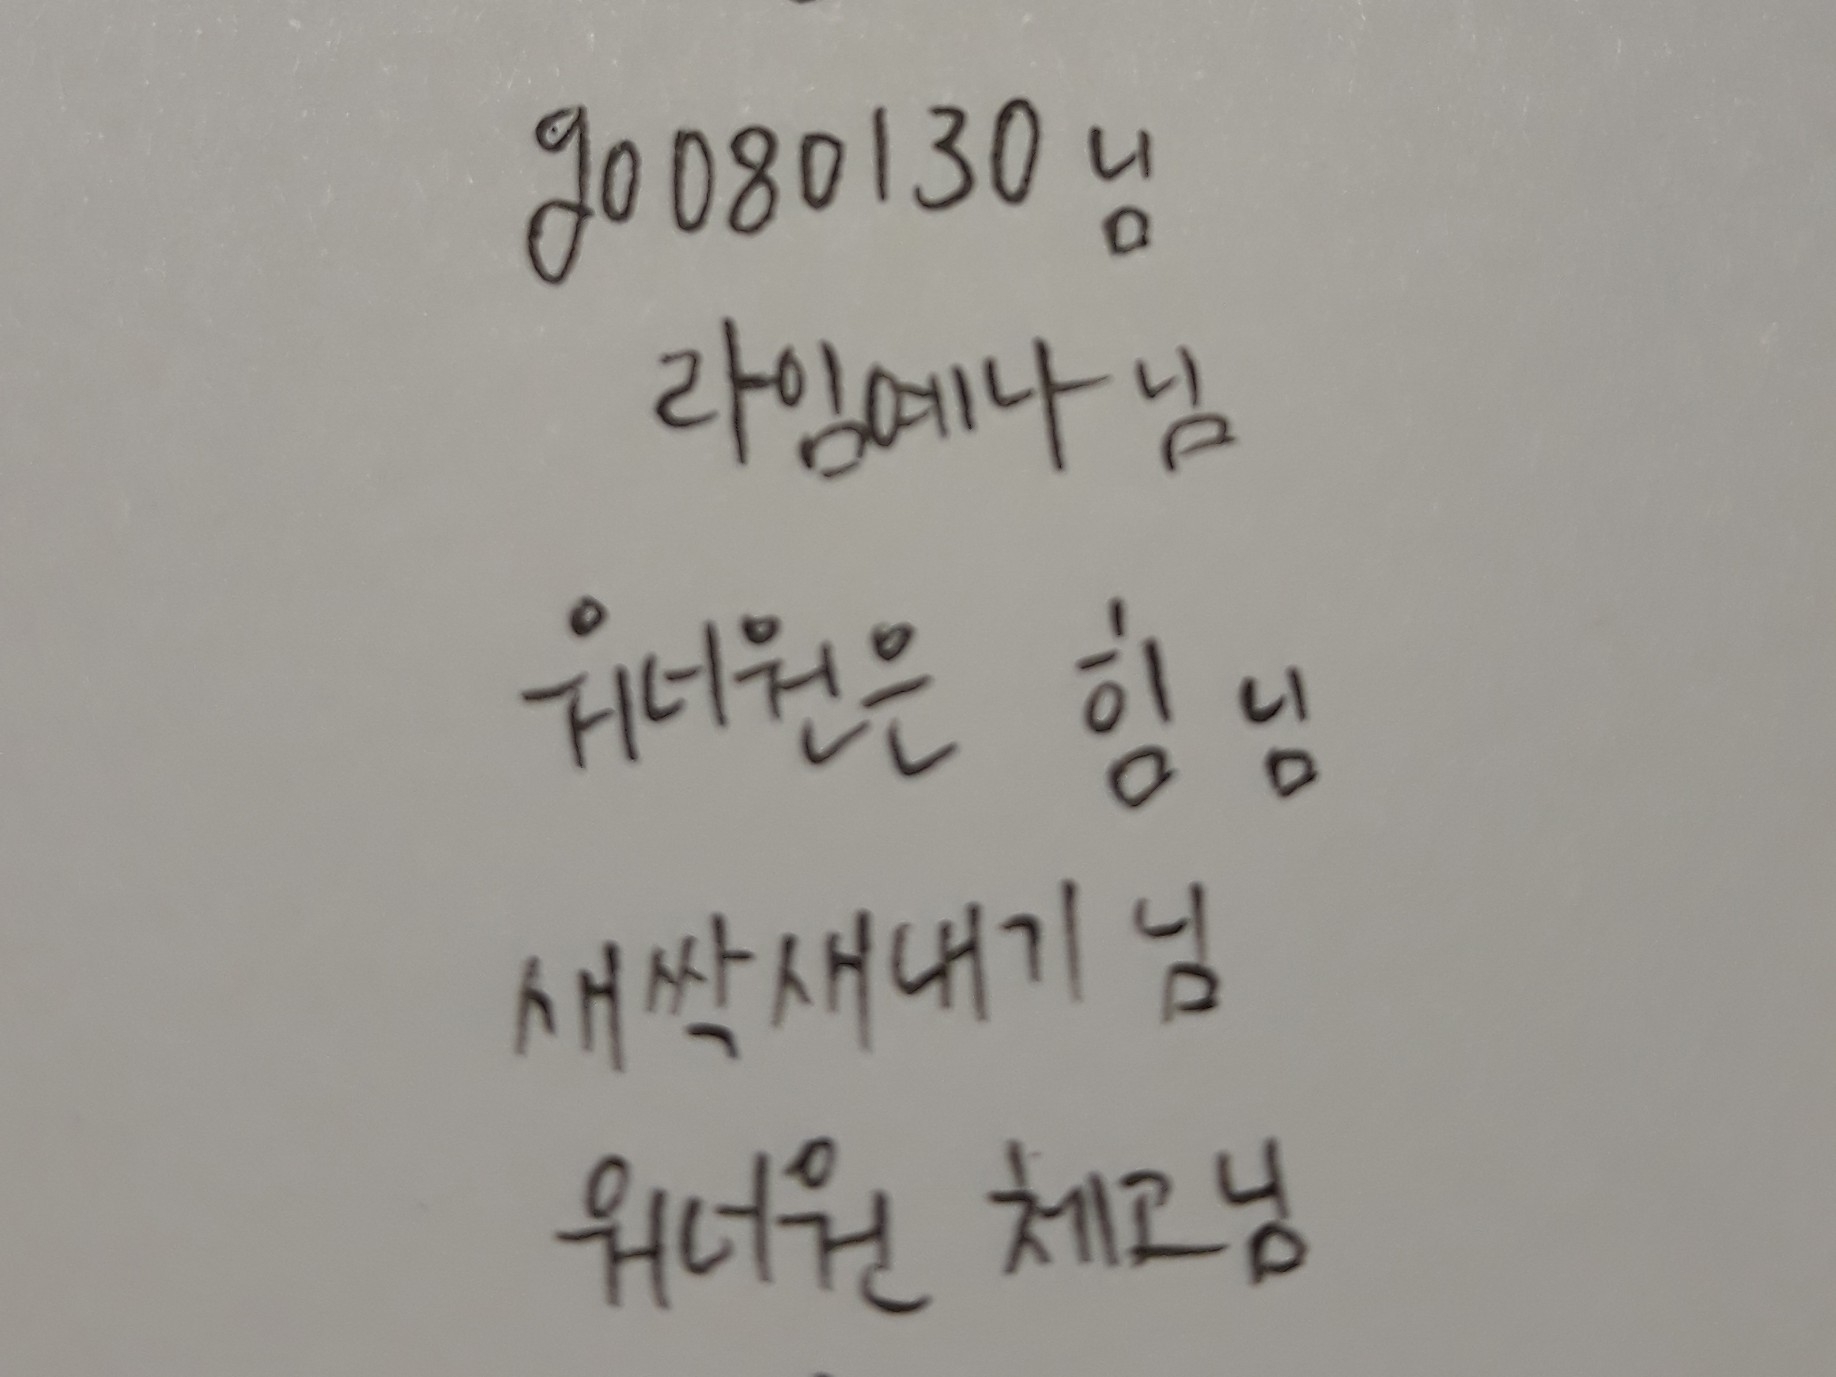 go080130 님
라임예나 님
워너원은 힘 님
새싹새내기 님
워너원 체고님